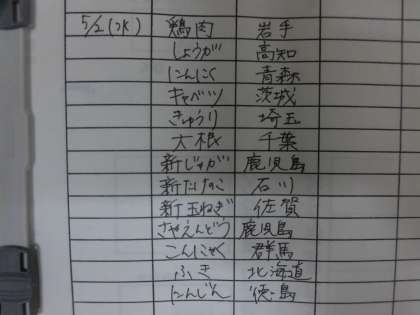 5/2(水) 鶏肉 岩手
しょうが 高知
にんにく 青森
キャベツ 茨城
きゅうり 埼玉
大根 千葉
新じゃが 鹿児島
新たけのこ 石川
新玉ねぎ 佐賀
さやえんどう 鹿児島
こんにゃく 群馬
ふき 北海道
にんじん 徳島